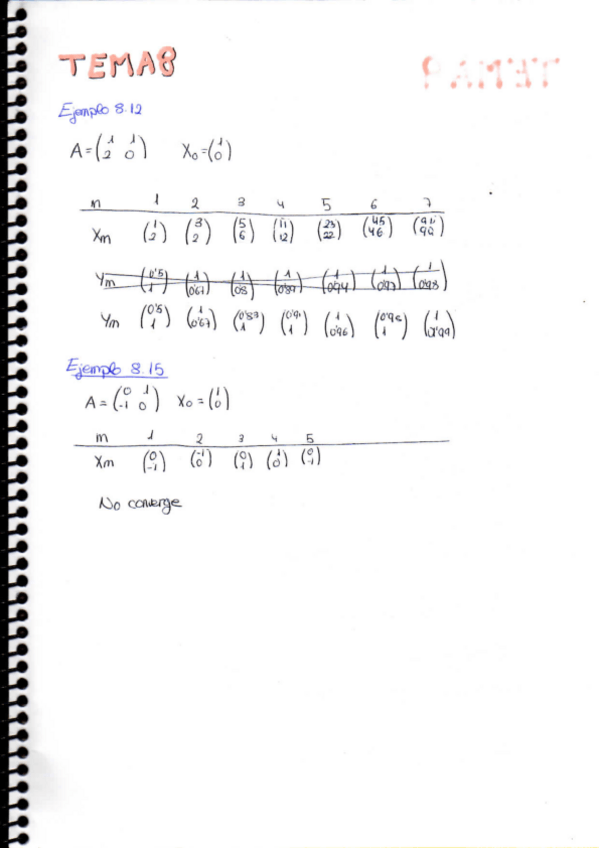 TEMA8
Ejemplo 8.12
A = (1 1 / 2 0) X0 = (1 / 0)
m 1 2 3 4 5 6 7
Xm (1 / 2) (3 / 2) (5 / 6) (11 / 12) (23 / 22) (45 / 46) (91 / 90)
Ym (0'5 / 1) (1 / 0'67) (1 / 0'8) (1 / 0'89) (1 / 0'94) (1 / 0'97) (1 / 0'98)
Ym (0'5 / 1) (1 / 0'67) (0'83 / 1) (0'91 / 1) (1 / 0'96) (0'98 / 1) (1 / 0'99)
Ejemplo 8.15
A = (0 1 / -1 0) X0 = (1 / 0)
m 1 2 3 4 5
Xm (0 / -1) (-1 / 0) (0 / 1) (1 / 0) (0 / -1)
No converge